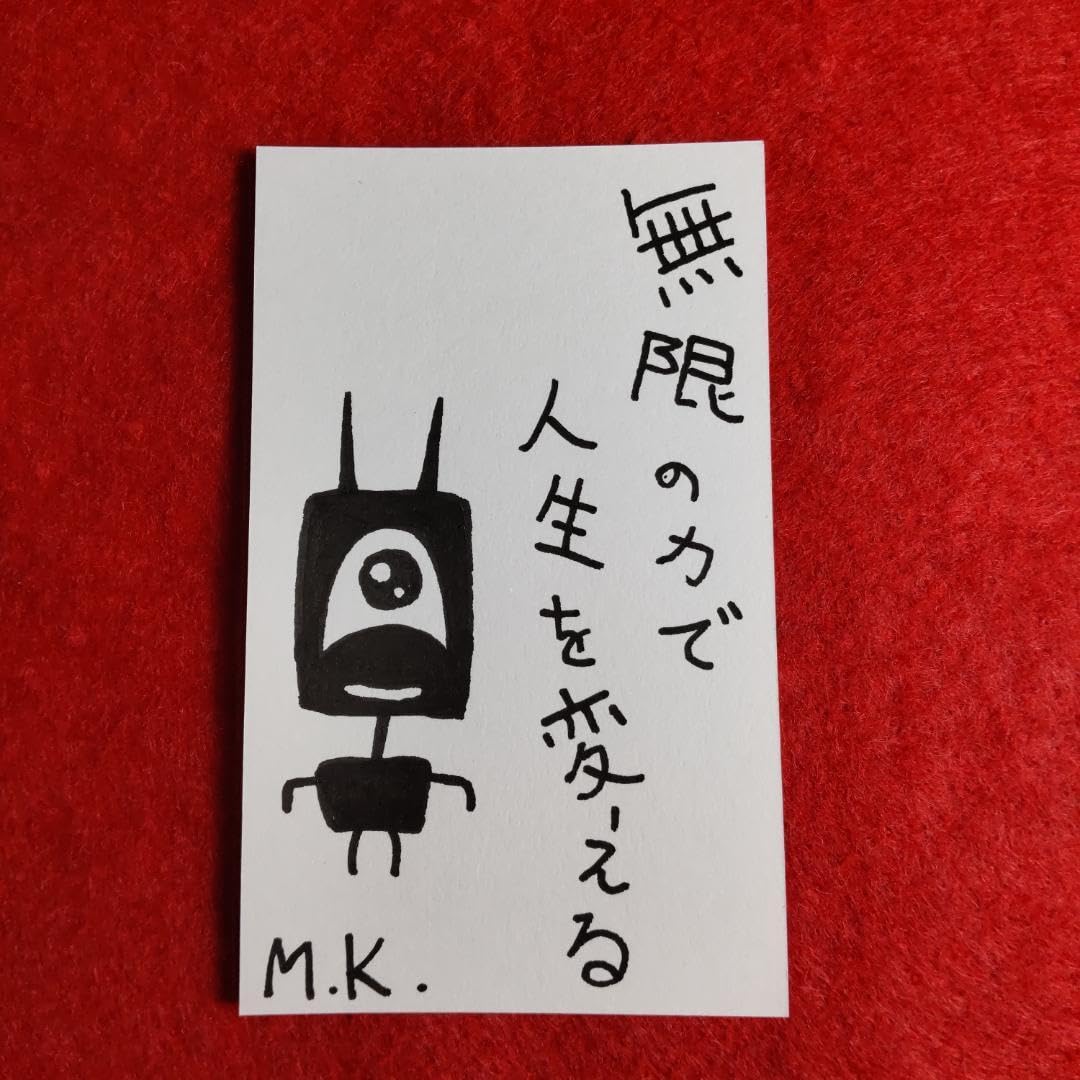 無限の力で
人生を変える
M.K.